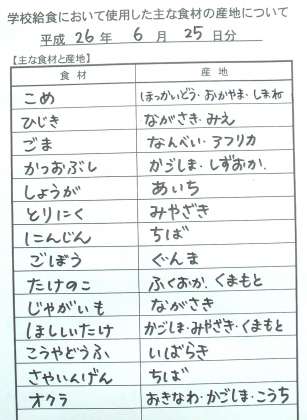 学校給食において使用した主な食材の産地について
平成 26 年 6 月 25 日分
【主な食材と産地】
食材 産地
こめ ほっかいどう・おかやま・しまね
ひじき ながさき・みえ
ごま なんべい・アフリカ
かつおぶし かごしま・しずおか
しょうが あいち
とりにく みやざき
にんじん ちば
ごぼう ぐんま
たけのこ ふくおか・くまもと
じゃがいも ながさき
ほししいたけ かごしま・みやざき・くまもと
こうやどうふ いばらき
さやいんげん ちば
オクラ おきなわ・かごしま・こうち